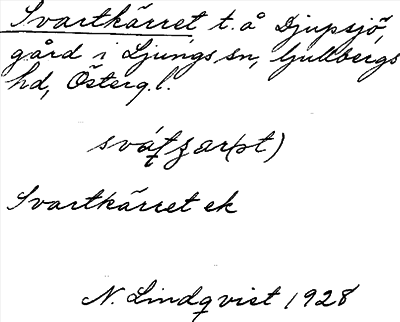 Svartkärret t. å Djupsjö,
gård i Ljungs sn, Gullbergs
hd, Österg.l.
Svartkärret ek
N. Lindqvist 1928